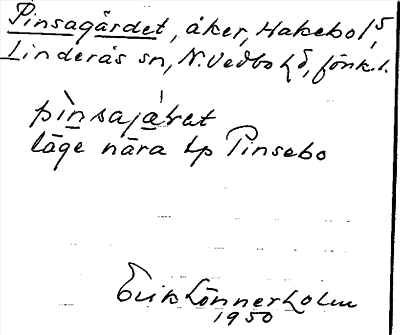 Pinsagärdet, åker, Hakebo 1/5,
Linderås sn, N. Vedbo hd, Jönk. l.
pìnsajàret
läge nära tp Pinsebo
Erik Lönnerholm
1950